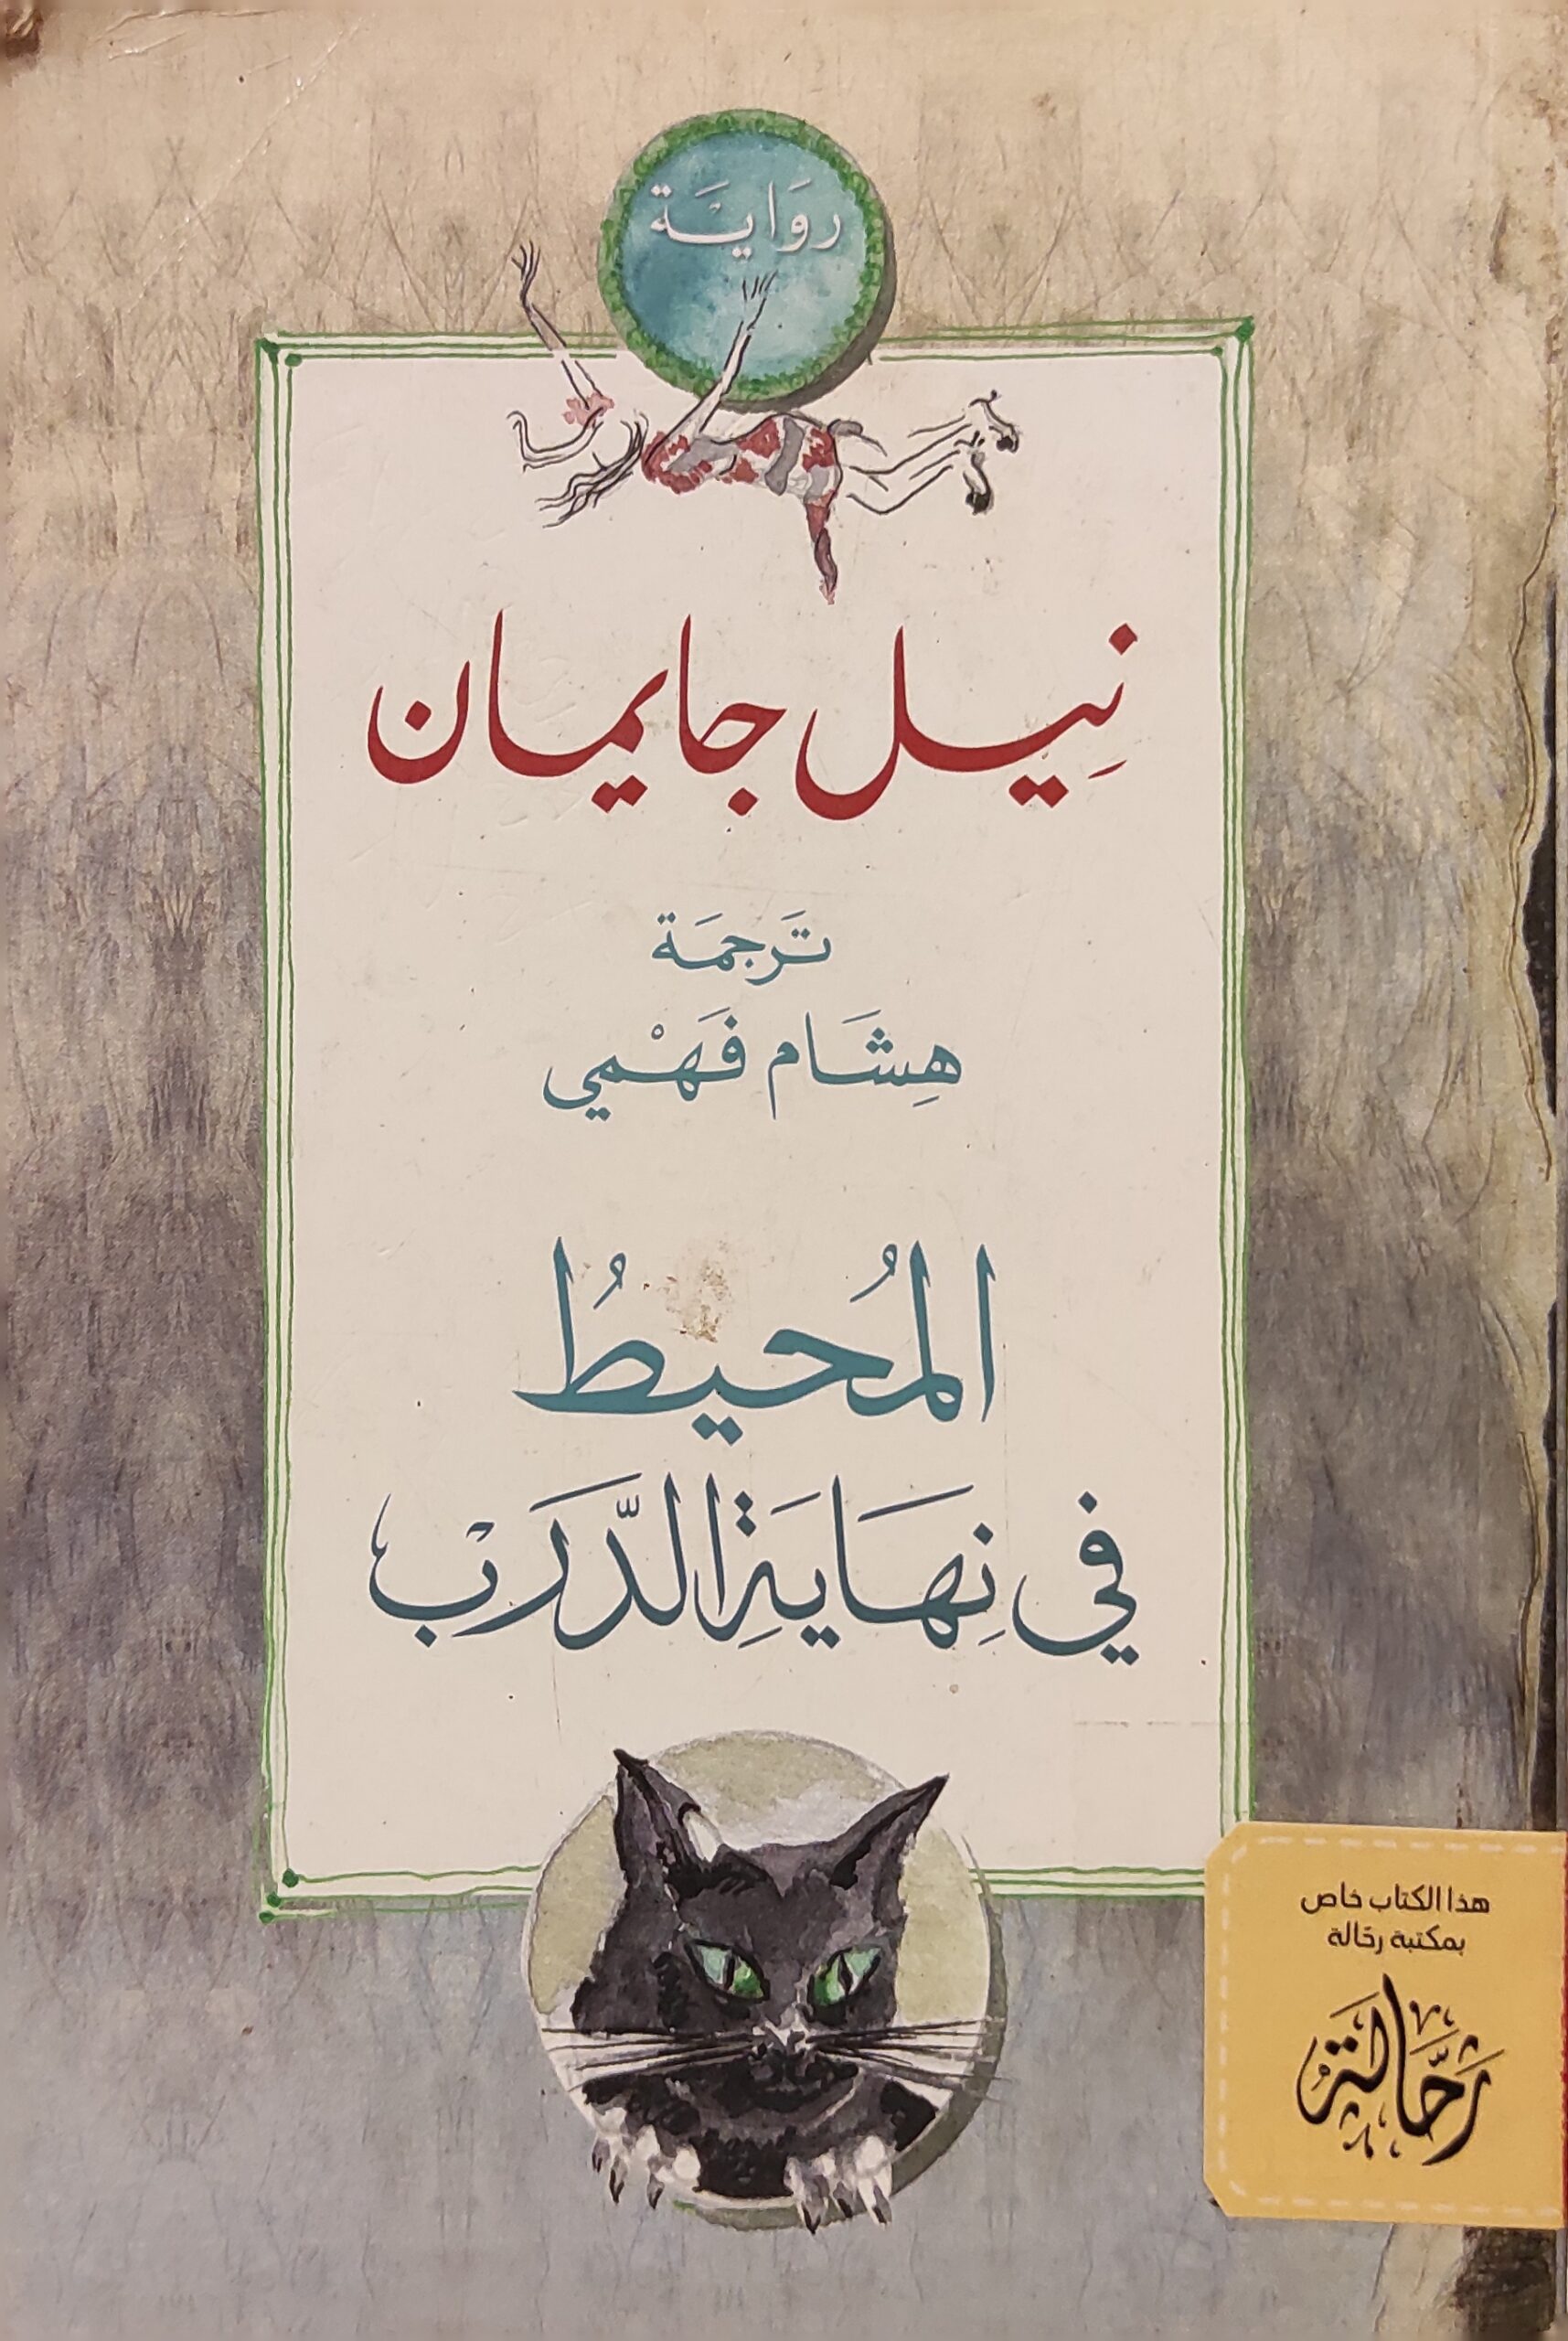 روَايَة
نِيل جايمان
تَرجمَة
هِشَام فَهْمي
المُحيطُ
في نِهَايَةِ الدَّرَبْ
هذا الكتاب خاص
بمكتبة رحّالة
رَحَّالَة